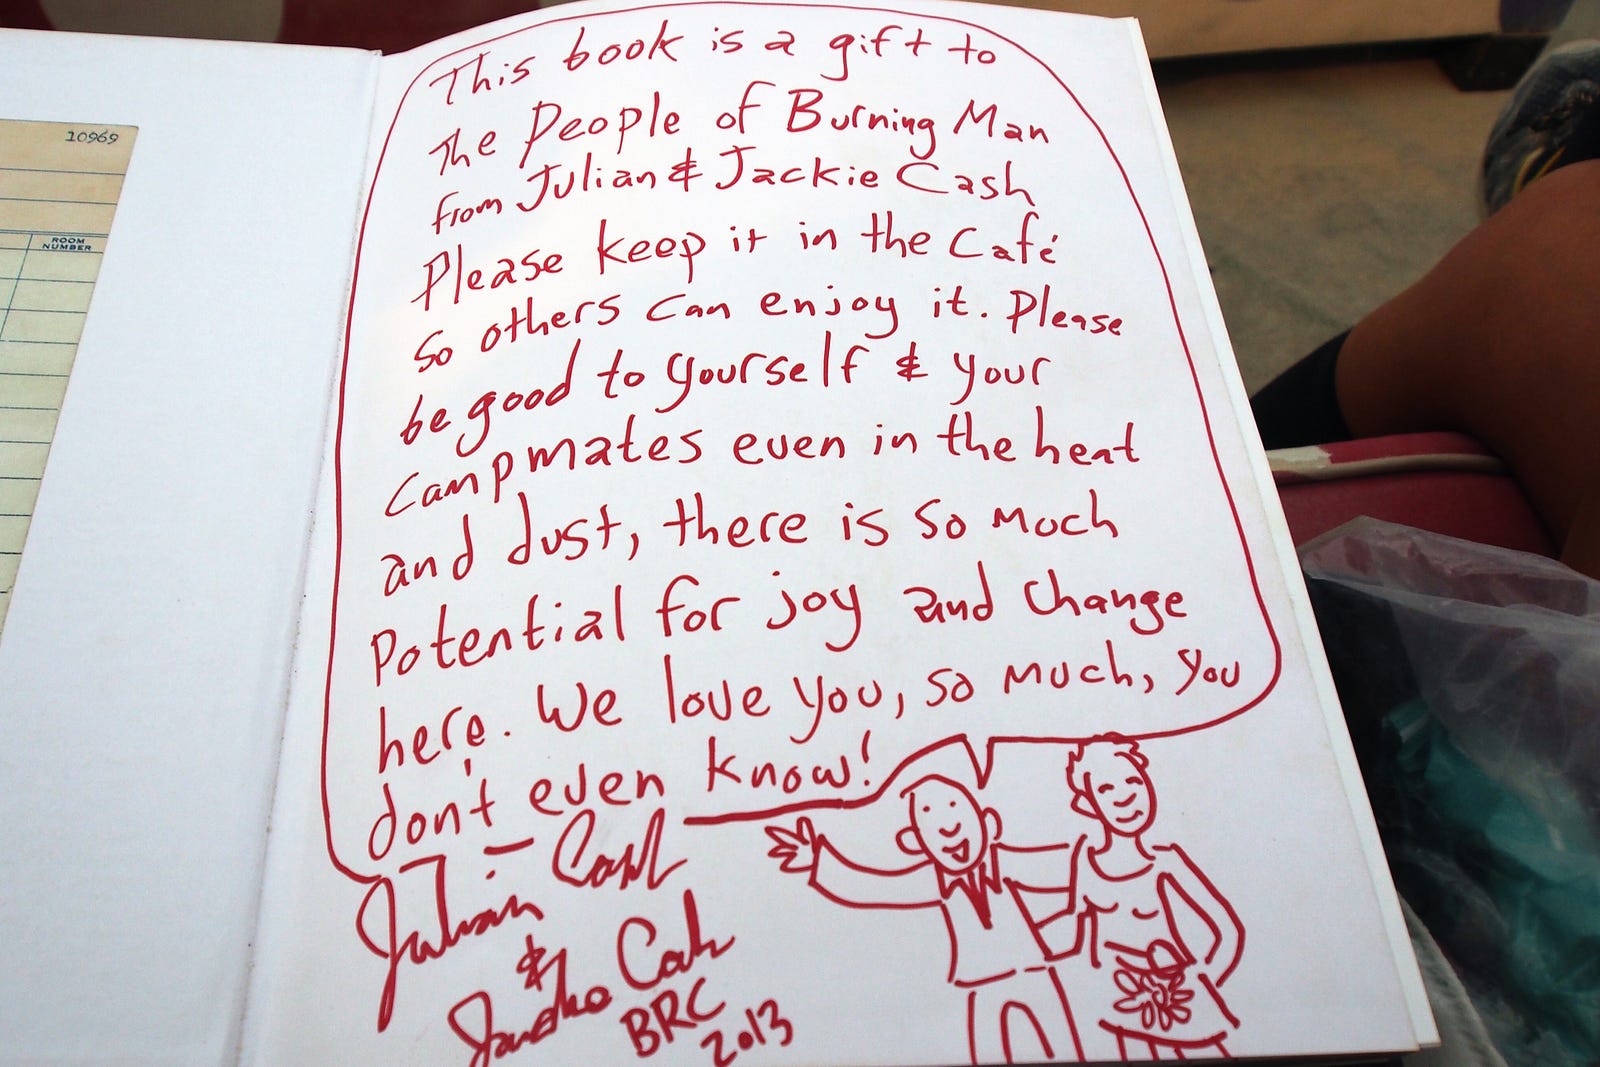 10969
ROOM
NUMBER
This book is a gift to
The People of Burning Man
from Julian & Jackie Cash
Please keep it in the Café
so others can enjoy it. Please
be good to yourself & your
campmates even in the heat
and dust, there is so much
Potential for joy and change
here. We love you, so much, you
don't even know!
Julian Cash
&
Cash
BRC
2013